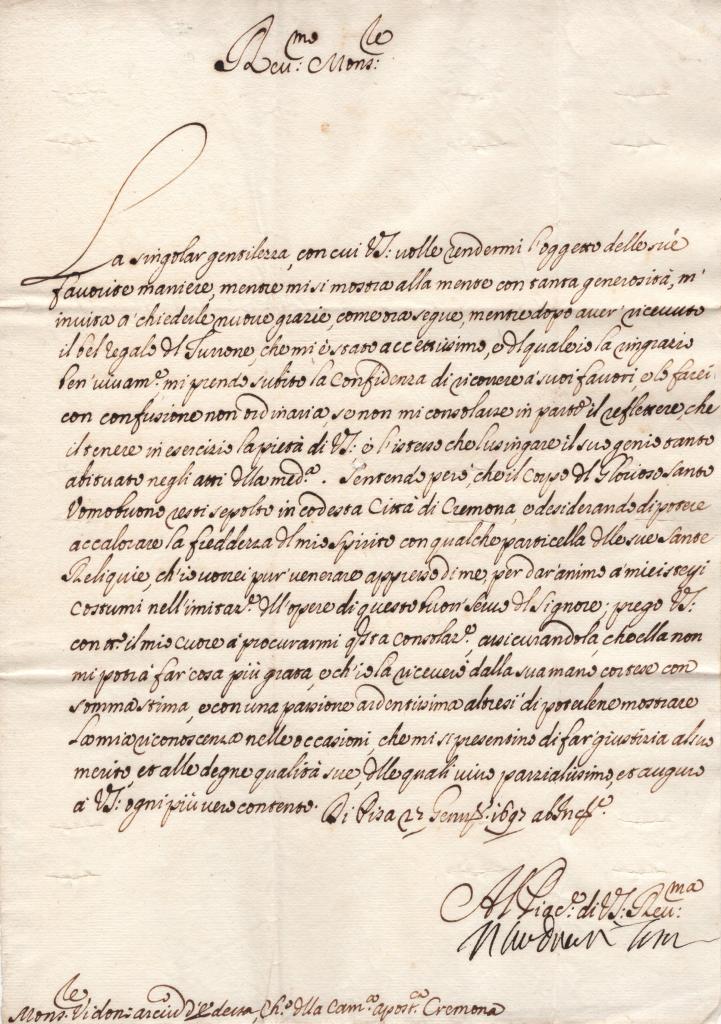 Reu:mo Mons:le
La singolar gentilezza, con cui VS: uolle rendermi l'oggetto delle sue
favorite maniere, mentre mi si mostra alla mente con tanta generosità, m'
inuita a' chiederle nuoue grazie, come ora segue, mentre dopo auer' riceuuto
il bel regalo dl Turrone, che mi è stato accettissimo, e dl quale io la ringrazio
ben' uiuam:e mi prendo subito la confidenza di ricorrere a' suoi fauori, e lo farei
con confusione non ordinaria, se non mi consolasse in parte il reflettere, che
il tenere in esercizio la pietà di VS: è l'istesso che lusingare il suo genio tanto
abituato negli atti dlla med:a. Sentendo però, che il Corpo dl Glorioso Santo
Uomobuono resti sepolto in codesta Città di Cremona, e desiderando di potere
accalorare la freddezza dl mio spirito con qualche particella dlle sue Sante
Reliquie, ch'io uorrei pur uenerare appresso di me, per dar animo a' miei stessi
costumi nell'imitaz:e dll'opere di questo buon' seruo dl Signore; prego VS:
con tt:o il mio cuore a' procurarmi qsta consolaz:e, assicurandola, che ella non
mi potrà far' cosa più grata, e ch'io la riceuerò dalla sua mano cortese con
somma stima, e con una passione ardentissima altresì di potèrlene mostrare
la mia riconoscenza nelle occasioni, che mi si presentino di far' giustizia al suo
merito, et alle degne qualità sue, dlle quali uiuo parzialissimo, et auguro
à VS: ogni più uero contento. Di Pisa 27 Genn:o 1697 ab Inc:e
Al Piac:e di VS: Reu:ma
Mons:le Vidoni d'detta, Ch:o dlla Cam:a apost:ca Cremona